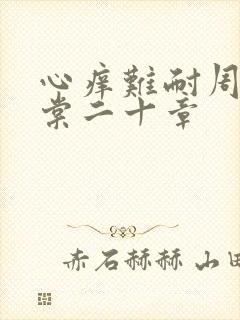 心痒難耐周
棠二十章
赤石赫赫 山田